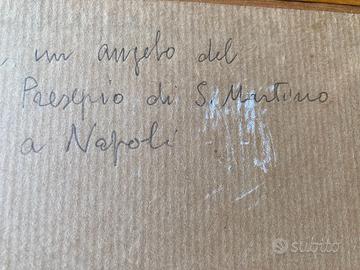 , un angelo del
Presepio di S. Martino
a Napoli
subito